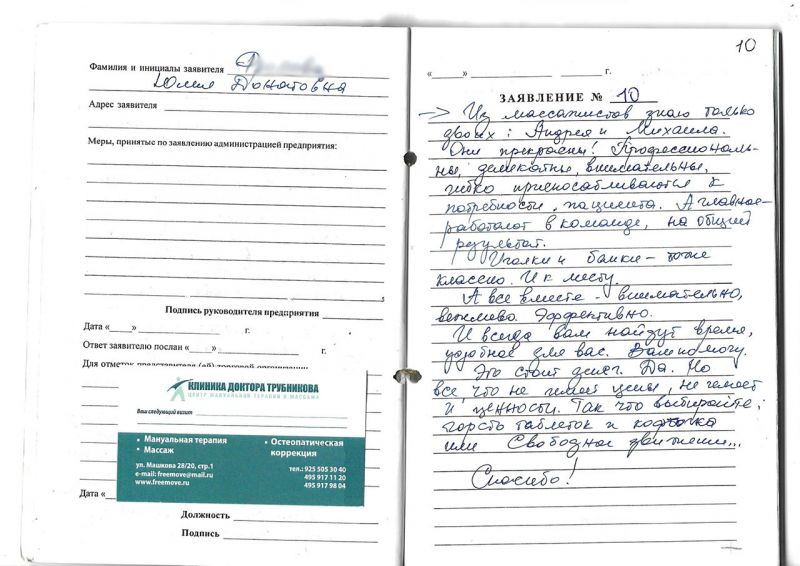 Фамилия и инициалы заявителя
Юлия Донатовна
Адрес заявителя
Меры, принятые по заявлению администрацией предприятия:
Подпись руководителя предприятия
Дата «____» г.
Ответ заявителю послан «____» г.
Для отметок представителя (ей) торговой организации
КЛИНИКА ДОКТОРА ТРУБНИКОВА
ЦЕНТР МАНУАЛЬНОЙ ТЕРАПИИ И МАССАЖА
Ваш следующий визит
• Мануальная терапия
• Массаж
• Остеопатическая
коррекция
ул. Машкова 28/20, стр.1
e-mail: freemove@mail.ru
www.freemove.ru
тел.: 925 505 30 40
495 917 11 20
495 917 98 04
Дата «
Должность
Подпись
10
«____» г.
ЗАЯВЛЕНИЕ № 10
Из массажистов знаю только
двоих: Андрея и Михаила.
Они прекрасны! Профессиональ-
ны, деликатны, внимательны,
гибко приспосабливаются к
потребности пациента. А главное –
работают в команде, на общий
результат.
Иголки и банки – тоже
классно. И к месту.
А все вместе – внимательно,
вежливо. Эффективно.
И всегда вам найдут время,
удобное для вас. Вам помогут.
Это стоит денег. Да. Но
все, что не имеет цены, не имеет
и ценности. Так что выбирайте:
горсть таблеток и
или Свободное движение...
Спасибо!